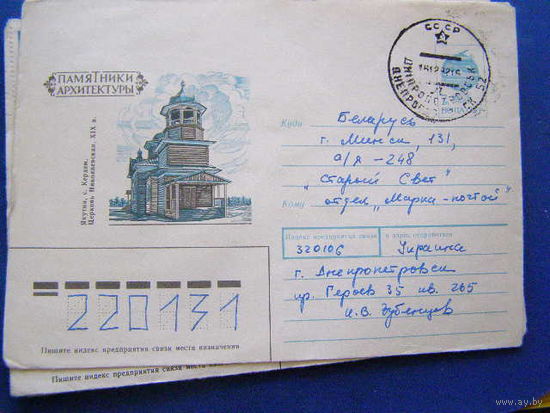 ПАМЯТНИКИ
АРХИТЕКТУРЫ
Якутия, с. Кердем.
Церковь Николаевская. XIX в.
СССР
ДНЕПРОПЕТРОВСК 52
ПОЧТА
Куда
Беларусь
г. Минск, 131,
а/я - 248
"Старый Свет"
Кому
отдел "Марка-почтой"
Индекс предприятия связи и адрес отправителя
320106
Украина
г. Днепропетровск
пр. Героев 35 кв. 265
Н. В. Зубенцов
220131
Пишите индекс предприятия связи места назначения
Пишите индекс предприятия связи места назн
www.ay.by